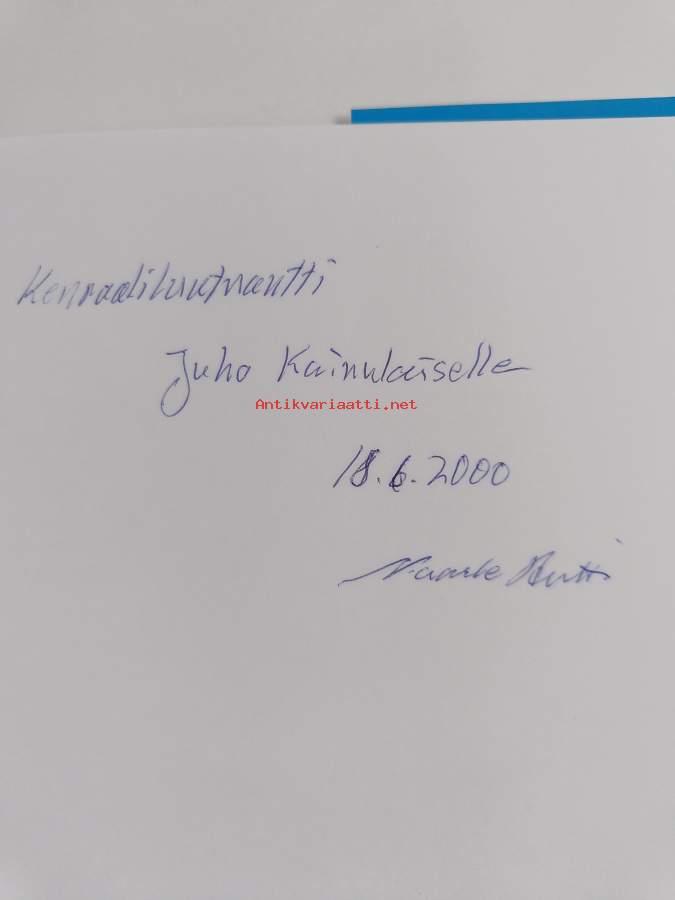 Kenraaliluutnantti
Juho Kainulaiselle
Antikvariaatti.net
18.6.2000